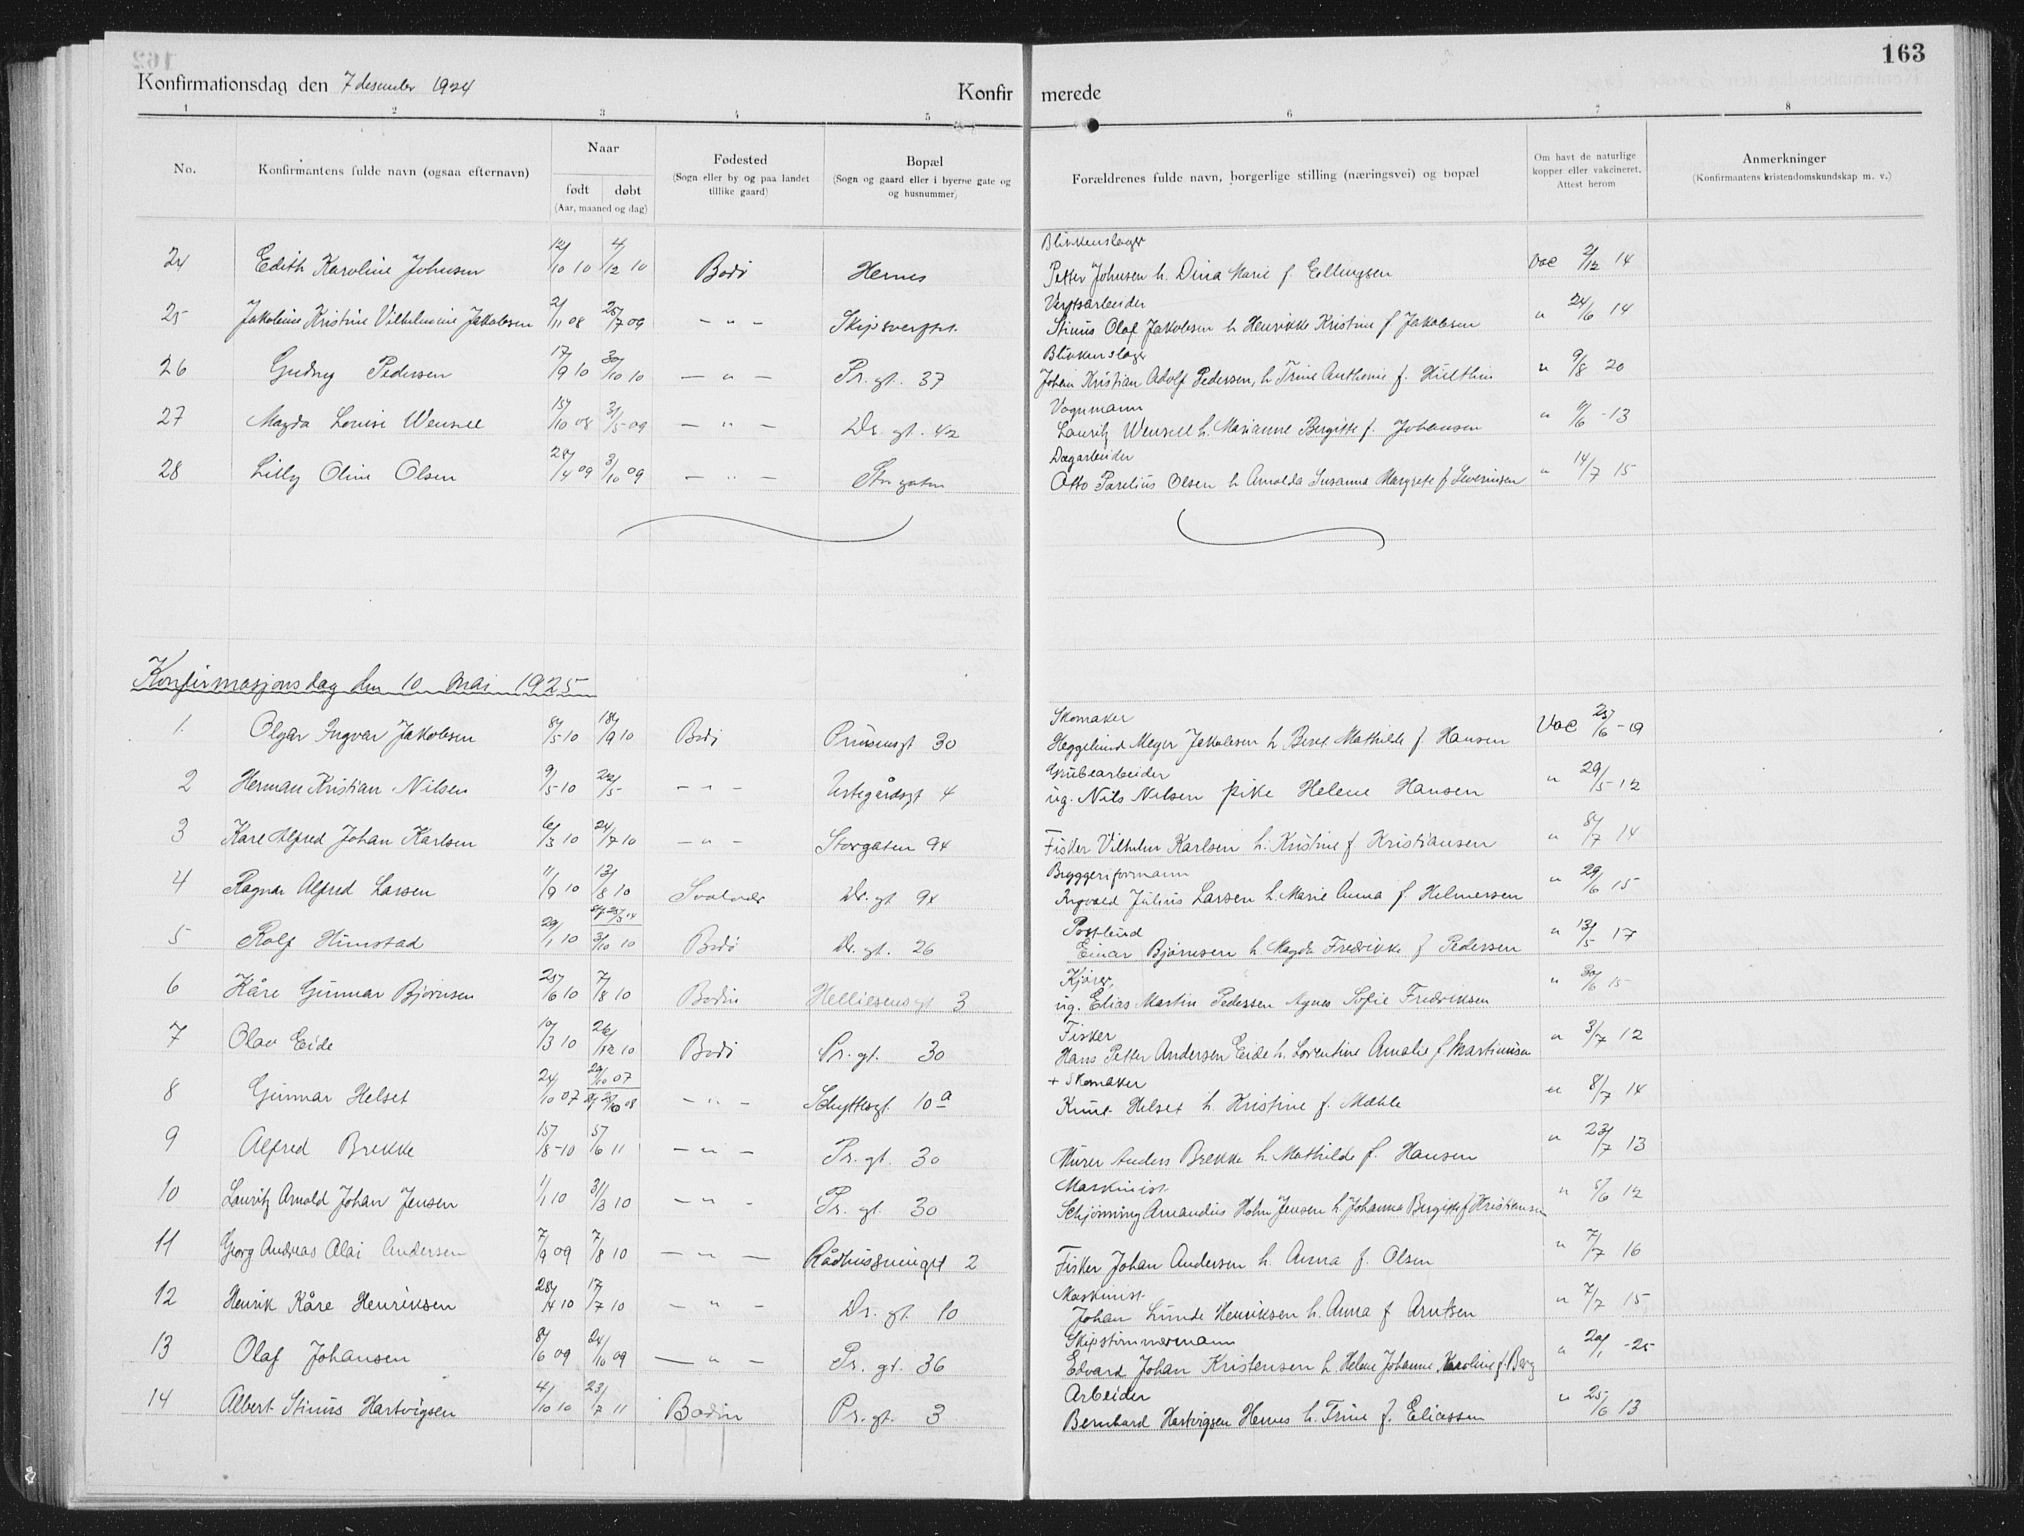 163
Konfirmationsdag den 7 desember 1924
Konfir merede
1 2 3 4 5 6 7 8
No. Konfirmantens fulde navn (ogsaa efternavn) Naar født døbt (Aar, maaned og dag) Fødested (Sogn eller by og paa landet tillike gaard) Bopæl (Sogn og gaard eller i byerne gate og og husnummer) Forældrenes fulde navn, borgerlige stilling (næringsvei) og bopæl Om havt de naturlige kopper eller vakcineret. Attest herom Anmerkninger (Konfirmantens kristendomskundskap m. v.)
Blikkenslager
24 Edith Karoline Johnsen 12/10 10 4/12 10 Bodø Hernes Petter Johnsen h. Dina Marie f. Ellingsen Vac 2/12 14
Verftsarbeider
25 Jakobine Kristine Vilhelmine Jakobsen 2/11 08 25/7 09 — " — Skipsverftet Stinius Olaf Jakobsen h Henrikke Kristine f Jakobsen " 24/6 14
Blikkenslager
26 Gudny Pedersen 17/9 10 30/10 10 — " — Pr. gt. 37 Johan Kristian Adolf Pedersen, h Trine Anthonie f. " 9/8 20
Vognmann
27 Magda Lovise Wensell 15/10 08 31/5 09 — " — Dr. gt. 42 Lauritz Wensell h. Marianne Bergitte f. Johansen " /6 -13
Dagarbeider
28 Lilly Oline Olsen 28/4 09 3/10 09 — " — Storgaten Otto Parelius Olsen h Arnolda Susanna Margrete f Severinsen " 14/7 15
Konfirmasjonsdag den 10 mai 1925
Skomaker
1. Olgar Ingvar Jakobsen 8/5 10 18/9 10 Bodø Prinsensgt 30 Heggelund Meyer Jakobsen h Beret Mathilde f Hansen Vac 25/6 -19
Grubearbeider
2 Herman Kristian Nilsen 9/5 10 22/5 — " — Urtegårdsgt 4 ug. Nils Nilsen pike Helene Hansen " 29/5 12
3 Kåre Alfred Johan Karlsen 6/3 10 24/7 10 — " — Storgaten 94 Fisker Vilhelm Karlsen h. Kristine f Kristiansen " 8/7 14
Bryggeriformann
4 Ragnar Alfred Larsen 11/9 10 13/8 10 Svolvær Dr. gt 94 Ingvald Julius Larsen h. Marie Anna f Helmersen " 29/6 15
Postbud
5 Rolf Himstad 29/1 10 3/10 10 Bodø Dr. gt. 26 Einar Bjørnsen h. Magda Fredrikke f Pedersen " 13/5 17
Kjører,
6 Kåre Gunnar Bjørnsen 25/6 10 7/8 10 Bodin Helliesensgt 3 ug. Elias Martin Pedersen Agnes Sofie Fredriksen " 30/6 15
Fisker
7 Olav Eide 10/3 10 26/12 10 Bodø Pr. gt. 30 Hans Petter Andersen Eide h. Lorentine Amalie f. Martinusen " 3/7 12
+ Skomaker
8 Gunnar Helset 24/10 07 29/10 07 — " — Schyttesgt. 10 a Knut Helset h Kristine f. Mæhle " 8/7 14
9 Alfred Brekke 15/8-10 5/6 11 — " — Pr. gt. 30 Murer Anders Brekke h. Mathilde f. Hansen " 23/7 13
Maskinist
10 Lauritz Arnold Johan Jensen 1/1 10 31/3 10 — " — Pr. gt. 30 Schjønning Amandus Holm Jensen h Johanna Bergitte f Kristensen " 5/6 12
11 Georg Andreas Olai Andersen 7/9 09 7/8 10 — " — Rådhussvinget 2 Fisker Johan Andersen h. Anna f. Olsen " 7/7 16
Maskinist
12 Henrik Kåre Henriksen 28/4 10 17/7 10 — " — Dr. gt. 10 Johan Lunde Henriksen h. Anna f Arntsen " 7/7 15
Skipstømmermann
13 Olaf Johansen 8/6 09 24/10 09 — " — Pr. gt. 36 Edvard Johan Kristensen h. Helene Johanne Karoline f. Berg " 20/1 -25
Arbeider
14 Albert Stinus Hartvigsen 4/10 10 23/7 11 Bodin Pr. gt. 3 Bernhard Hartvigsen Hernes h. Trine f. Eliassen " 25/6 13